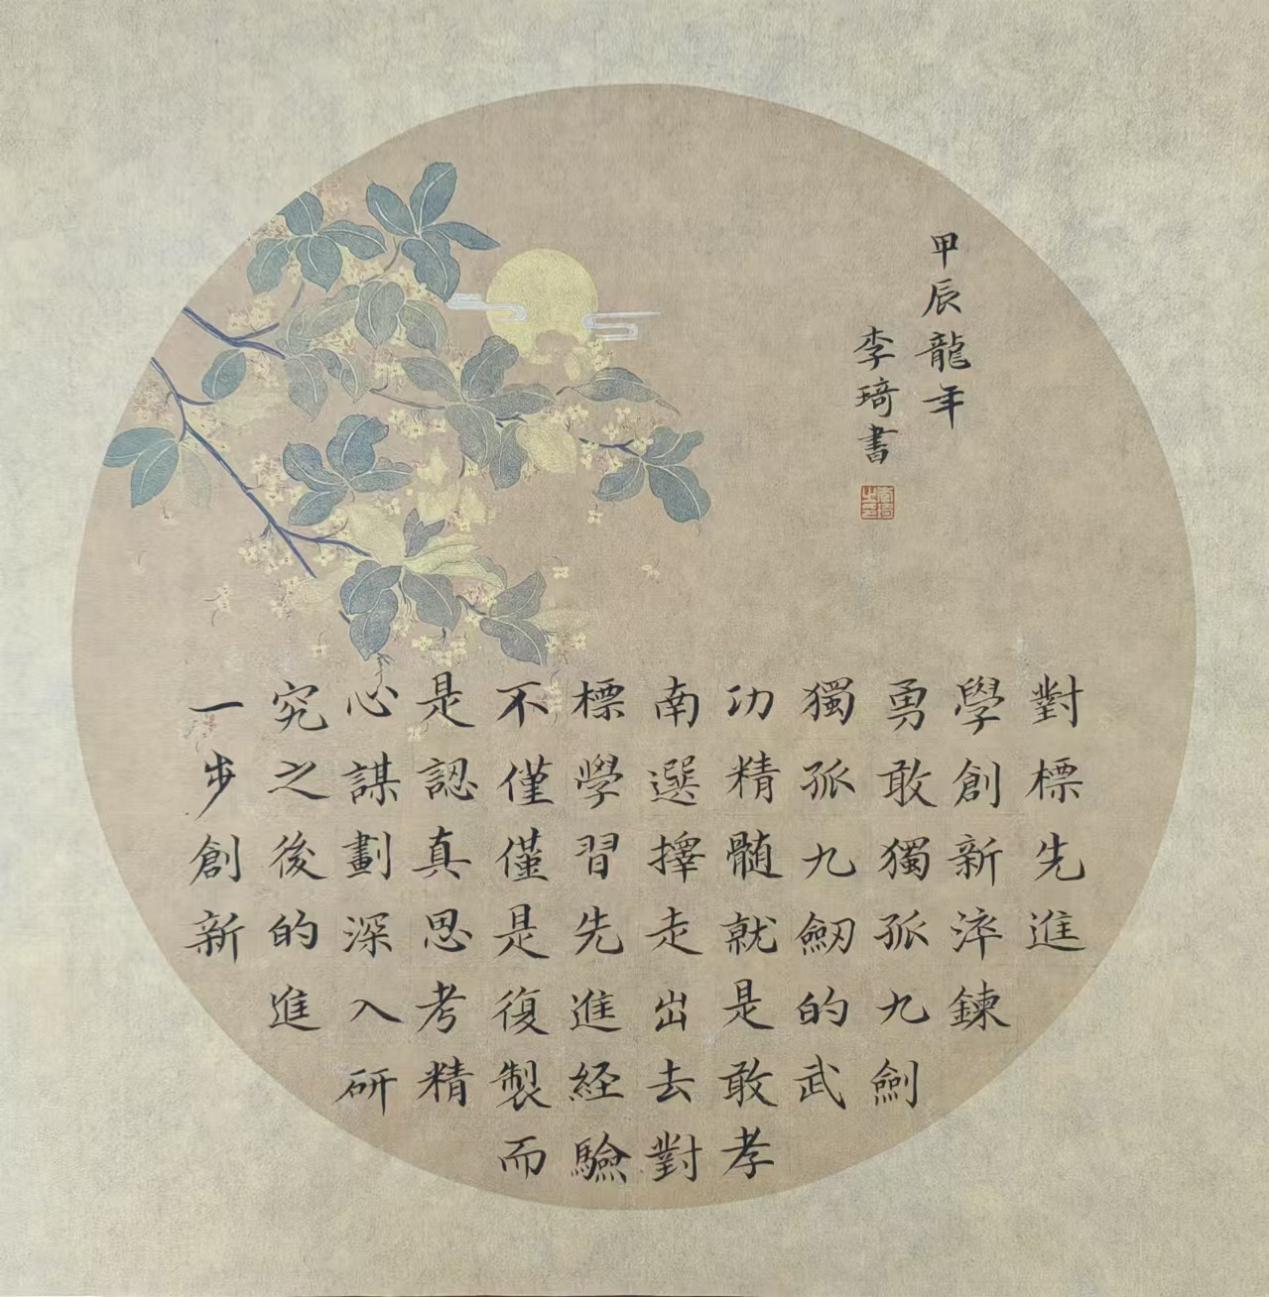 對標先進
學創新淬鍊
勇敢獨孤九劍
獨孤九劒的武
功精髓就是敢孝
南選擇走出去對
標學習先進経驗
不僅僅是復製而
是認真思考精
心謀劃深入研
究之後的進
一步創新
甲辰龍年
李琦書